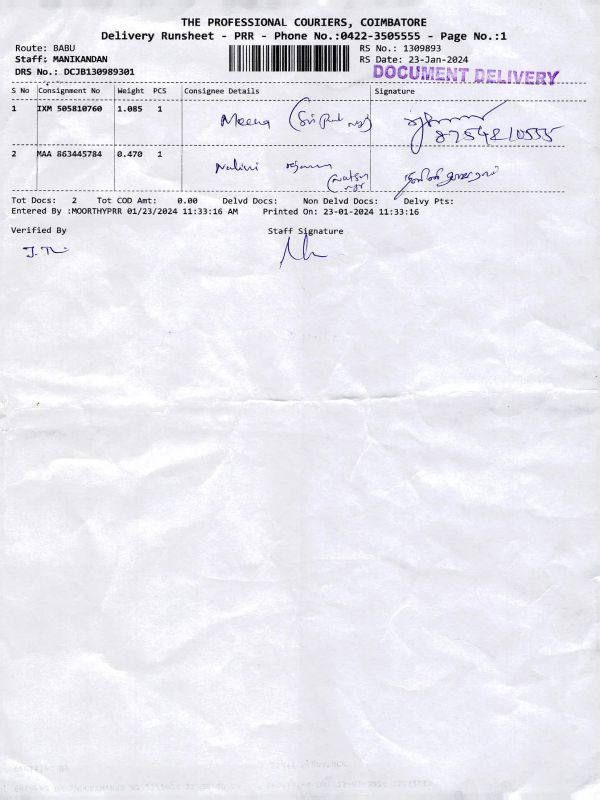 THE PROFESSIONAL COURIERS, COIMBATORE
Delivery Runsheet - PRR - Phone No.:0422-3505555 - Page No.:1
Route: BABU RS No.: 1309893
Staff: MANIKANDAN RS Date: 23-Jan-2024
DRS No.: DCJB130989301 DOCUMENT DELIVERY
S No Consignment No Weight PCS Consignee Details Signature
1 IXM 505810760 1.085 1 Meena
8754210555
2 MAA 863445784 0.470 1 Nalini
Tot Docs: 2 Tot COD Amt: 0.00 Delvd Docs: Non Delvd Docs: Delvy Pts:
Entered By :MOORTHYPRR 01/23/2024 11:33:16 AM Printed On: 23-01-2024 11:33:16
Verified By Staff Signature